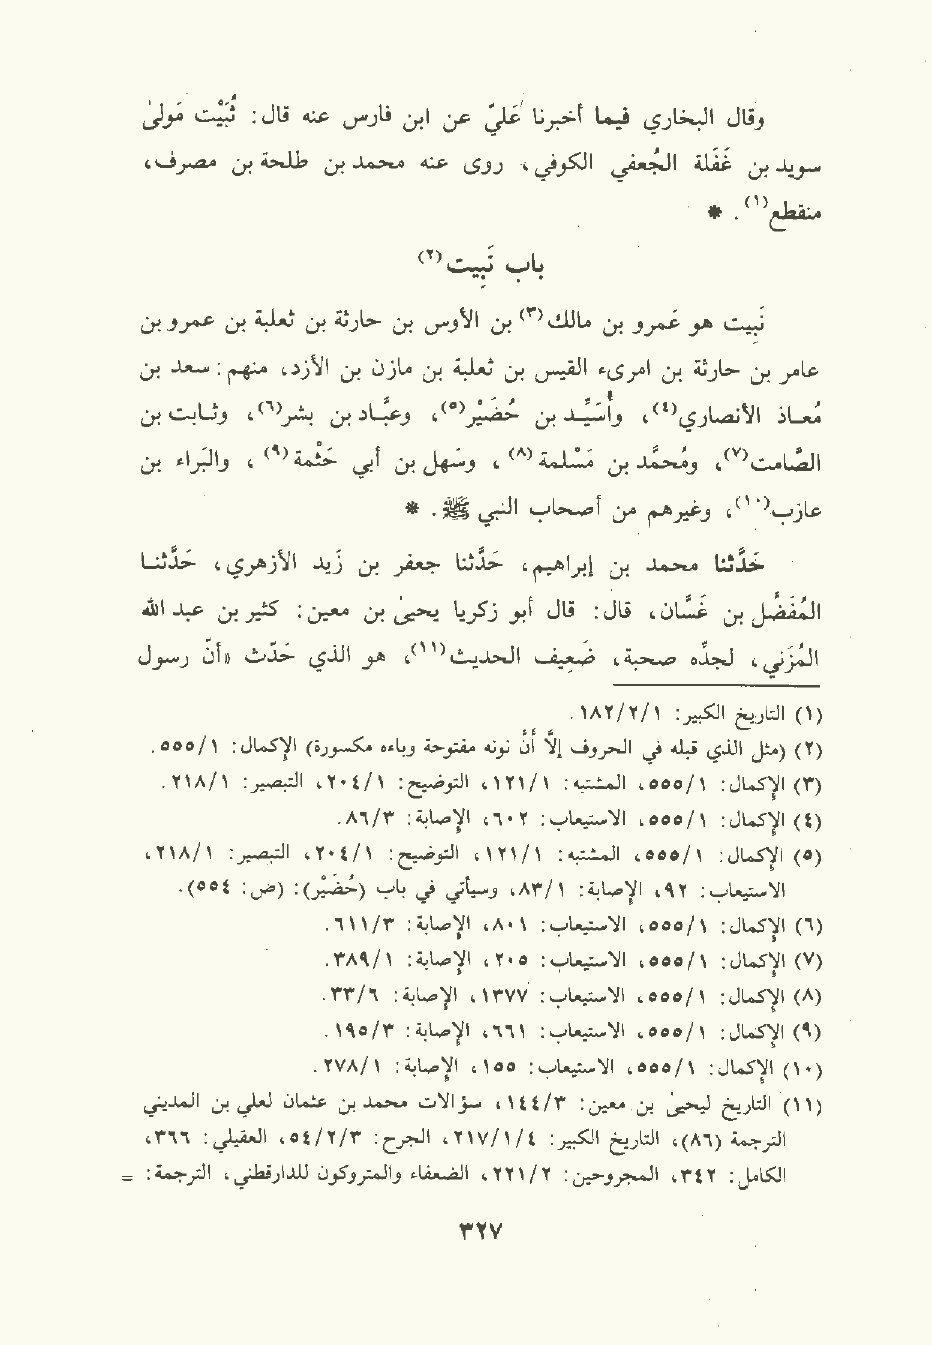 وقال البخاري فيما أخبرنا عَليّ عن ابن فارس عنه قال: ثُبَيْت مَولىٰ
سويد بن غَفَلة الجُعفي الكوفي، روى عنه محمد بن طلحة بن مصرف،
منقطع(١). *
باب نَبِيت(٢)
نَبِيت هو عَمرو بن مالك(٣) بن الأوس بن حارثة بن ثعلبة بن عمرو بن
عامر بن حارثة بن امرىء القيس بن ثعلبة بن مازن بن الأزد، منهم: سعد بن
مُعـاذ الأنصاري(٤)، وأُسَيـد بن حُضَيْر(٥)، وعبَّاد بن بشر(٦)، وثـابت بن
الصَّامت(٧)، ومُحمَّد بن مَسْلمة(٨)، وسَهل بن أبي حَثْمة(٩)، والبَراء بن
عازب(١٠)، وغيرهم من أصحاب النبي ﷺ. *
حَدَّثنا محمد بن إبراهيم، حَدَّثنا جعفر بن زَيد الأزهري، حَدَّثنـا
المُفَضَّل بن غَسَّان، قال: قال أبو زكريا يحيىٰ بن معين: كثير بن عبد الله
المُزَني، لجدّه صحبة، ضَعِيف الحديث(١١)، هو الذي حَدَّث «أنّ رسول
(١) التاريخ الكبير: ١/٢/١٨٢.
(٢) (مثل الذي قبله في الحروف إلاَّ أَنَّ نونه مفتوحة وباءه مكسورة) الإكمال: ١/٥٥٥.
(٣) الإكمال: ١/٥٥٥، المشتبه: ١/١٢١، التوضيح: ١/٢٠٤، التبصير: ١/٢١٨.
(٤) الإكمال: ١/٥٥٥، الاستيعاب: ٦٠٢، الإصابة: ٣/٨٦.
(٥) الإكمال: ١/٥٥٥، المشتبه: ١/١٢١، التوضيح: ١/٢٠٤، التبصير: ١/٢١٨،
الاستيعاب: ٩٢، الإصابة: ١/٨٣، وسيأتي في باب (حُضَيْر): (ص: ٥٥٤).
(٦) الإكمال: ١/٥٥٥، الاستيعاب: ٨٠١، الإصابة: ٣/٦١١.
(٧) الإكمال: ١/٥٥٥، الاستيعاب: ٢٠٥، الإصابة: ١/٣٨٩.
(٨) الإكمال: ١/٥٥٥، الاستيعاب: ١٣٧٧، الإصابة: ٦/٣٣.
(٩) الإكمال: ١/٥٥٥، الاستيعاب: ٦٦١، الإصابة: ٣/١٩٥.
(١٠) الإكمال: ١/٥٥٥، الاستيعاب: ١٥٥، الإصابة: ١/٢٧٨.
(١١) التاريخ ليحيىٰ بن معين: ٣/١٤٤، سؤالات محمد بن عثمان لعلي بن المديني
الترجمة (٨٦)، التاريخ الكبير: ٤/١/٢١٧، الجرح: ٣/٢/٥٤، العقيلي: ٣٦٦،
الكامل: ٣٤٢، المجروحين: ٢/٢٢١، الضعفاء والمتروكون للدارقطني، الترجمة: =
٣٢٧